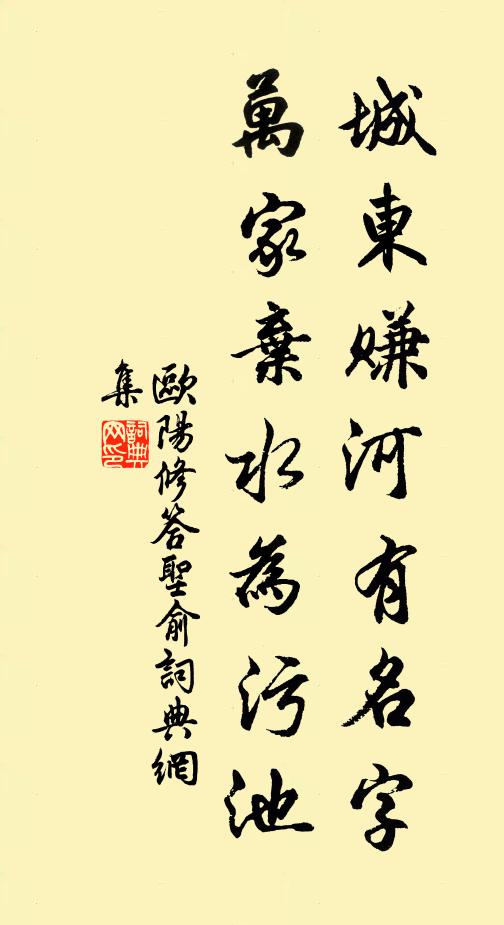 城東賺河有名字
萬家棄水為污池
歐陽修答聖俞詞典網
集
詞典网印